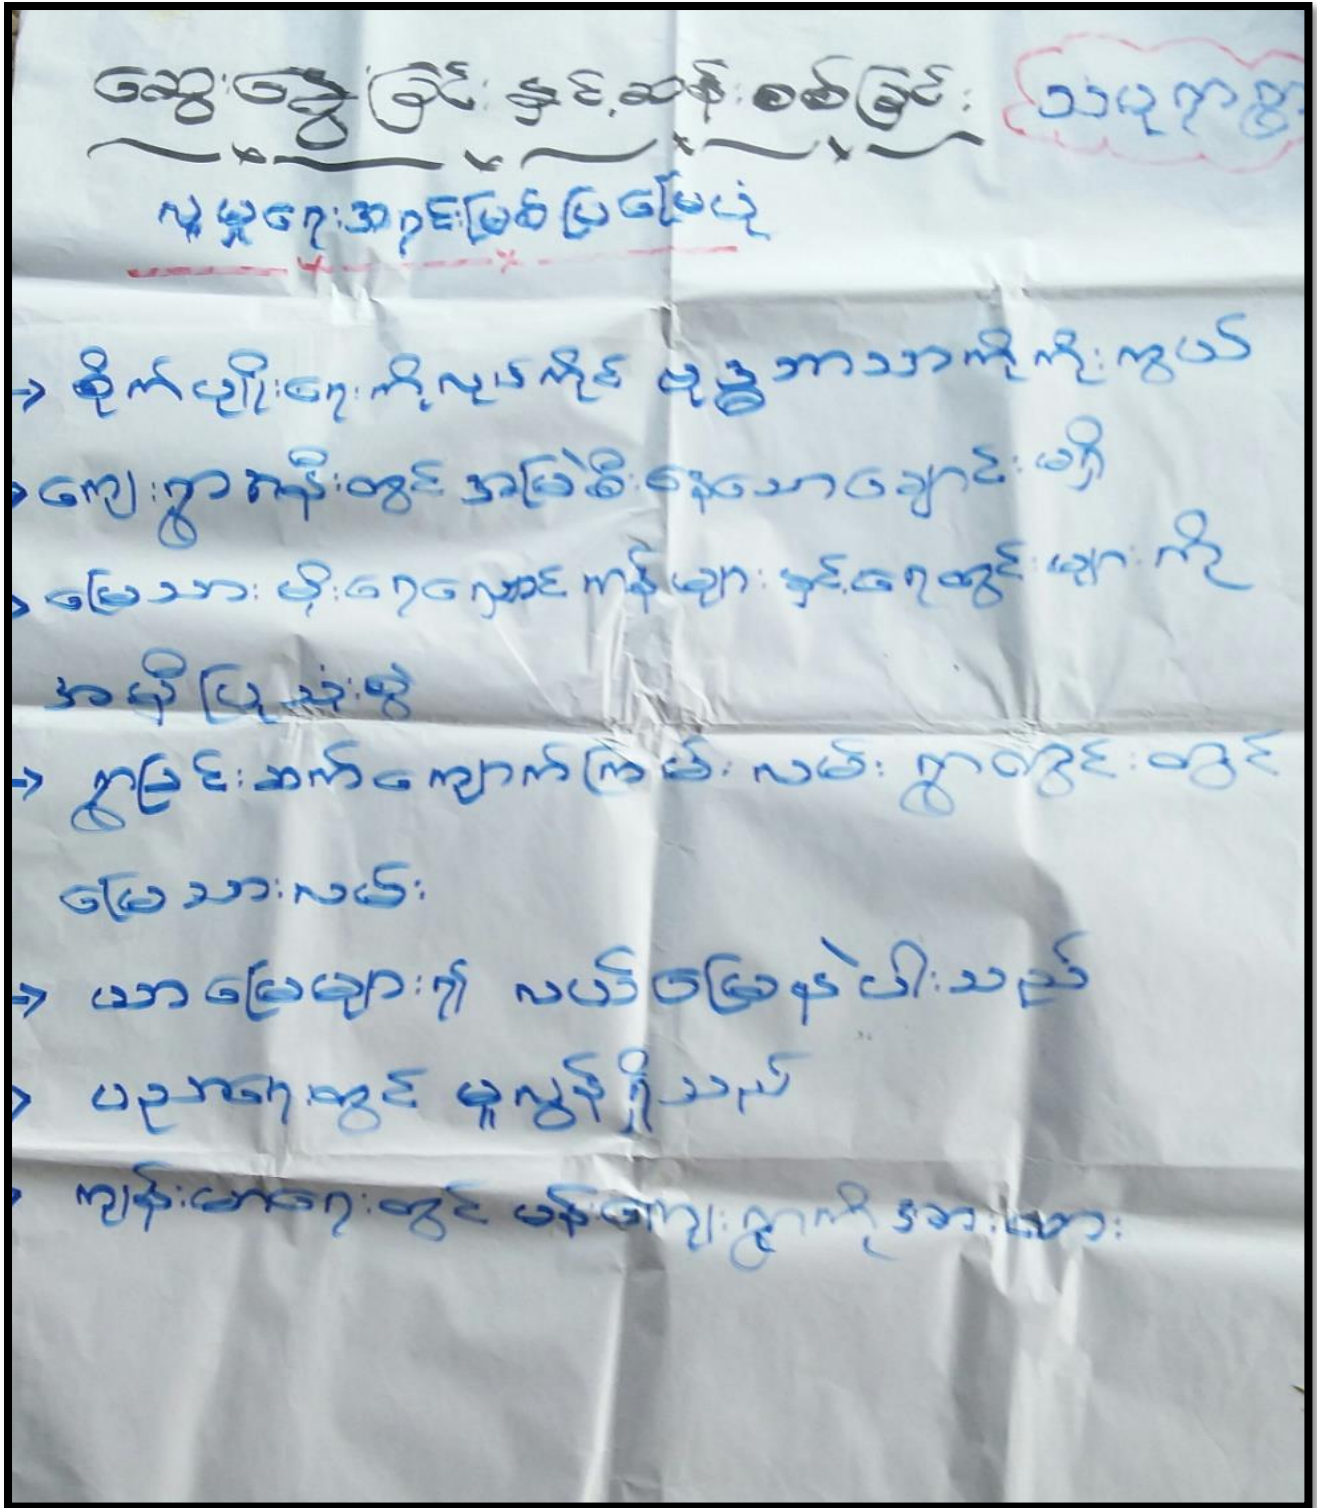 ဆွေးနွေးခြင်း နှင့် ဆန်းစစ်ခြင်း
သပုရာရွာ
လူမှုရေးအရင်းမြစ်ပြမြေပုံ
→ စိုက်ပျိုးရေးကိုလုပ်ကိုင် ဗုဒ္ဓဘာသာကိုကိုးကွယ်
→ ကျေးရွာအနီးတွင် အမြဲစီးနေသောချောင်းမရှိ
→ မြေသားမိုးရေလှောင်ကန်များ နှင့် ရေတွင်းများကို
အမှီပြုသုံးစွဲ
→ ရွာချင်းဆက်ကျောက်ကြမ်းလမ်း ရွာတွင်းတွင်
မြေသားလမ်း
→ ယာမြေများ၍ လယ်မြေနဲပါးသည်
→ ပညာရေးတွင် မူလွန်ရှိသည်
→ ကျန်းမာရေးတွင် ကျေးရွာကိုအားထား